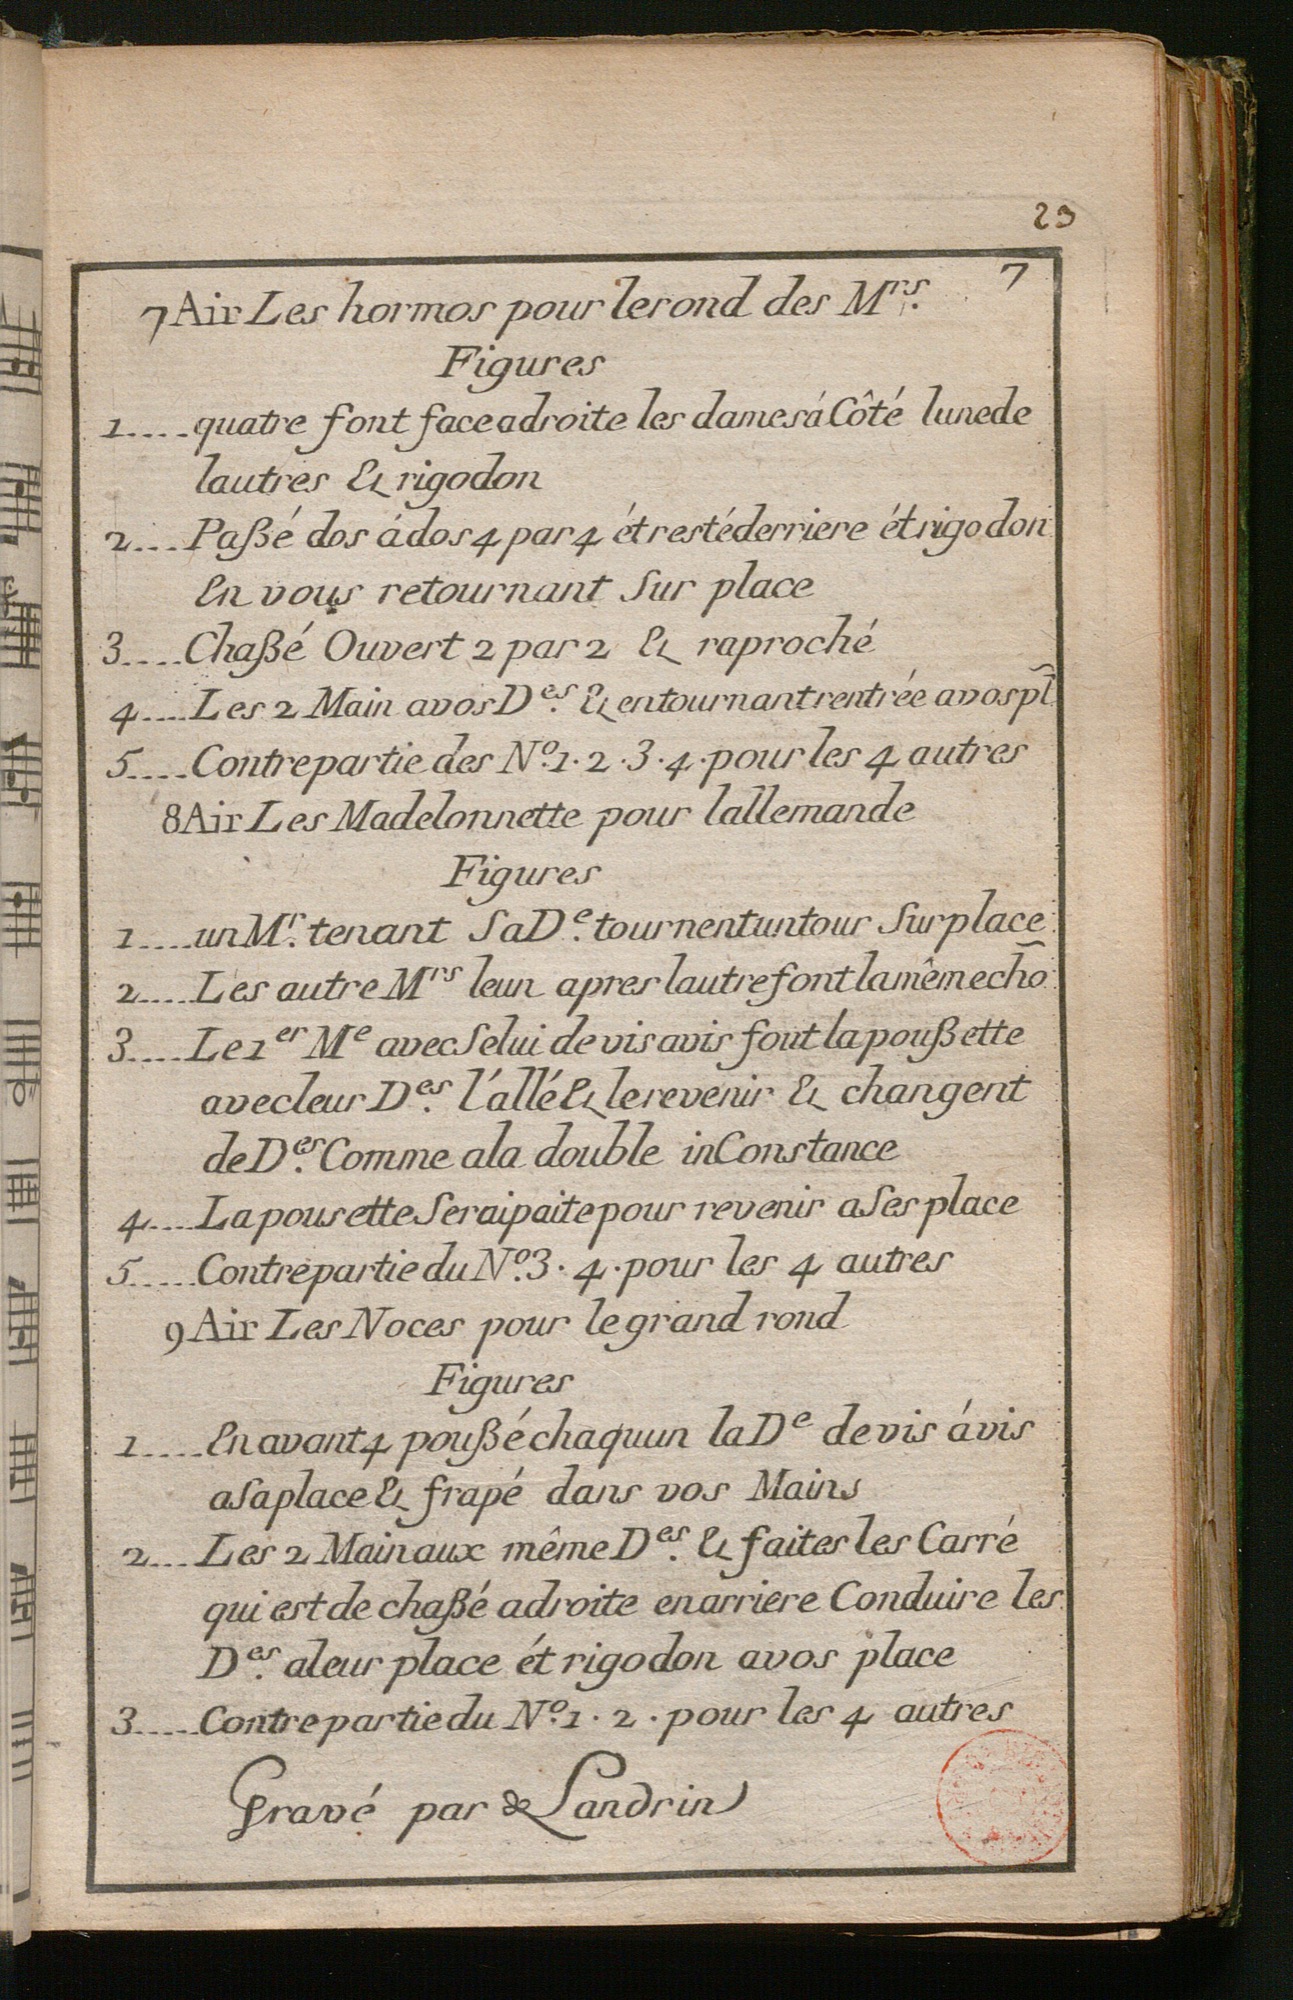 23
7
7 Air Les hormos pour le rond des Mrs.
Figures
1.....quatre font face a droite les dames á Côté lune de
lautres & rigodon
2....Paßé dos á dos 4 par 4 ét resté derriere ét rigodon
En vous retournant Sur place
3.....Chaßé Ouvert 2 par 2 & raproché
4.....Les 2 Main a vos Des. & en tournant rentrée a vos pl
5.....Contrepartie des No. 1. 2. 3. 4. pour les 4 autres
8 Air Les Madelonnette pour lallemande
Figures
1.....un Mr. tenant Sa De. tournent un tour Sur place
2.....Les autre Mrs leun apres lautre font la même cho
3.....Le 1er Me avec Selui de vis avis font la poußette
avec leur Des. l'allé & le revenir & changent
de Des. Comme a la double inConstance
4.....La pousette Serai paite pour revenir a Ses place
5.....Contrepartie du No. 3. 4. pour les 4 autres
9 Air Les Noces pour le grand rond
Figures
1.....En avant 4 poußé chaquun la De de vis á vis
a Sa place & frapé dans vos Mains
2....Les 2 Main aux même Des. & faites les Carré
qui est de chaßé a droite en arriere Conduire les
Des. a leur place ét rigodon a vos place
3.....Contrepartie du No. 1. 2. pour les 4 autres
Gravé par de Landrin